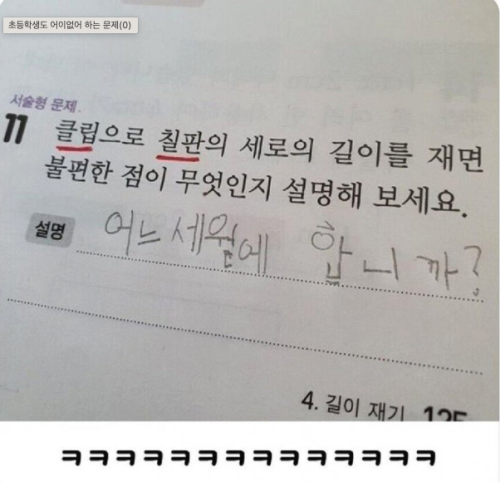 초등학생도 어이없어 하는 문제(0)
서술형 문제.
11 클립으로 칠판의 세로의 길이를 재면
불편한 점이 무엇인지 설명해 보세요.
설명 어느세월에 합니까?
4. 길이 재기 125
ㅋㅋㅋㅋㅋㅋㅋㅋㅋㅋㅋㅋㅋㅋ